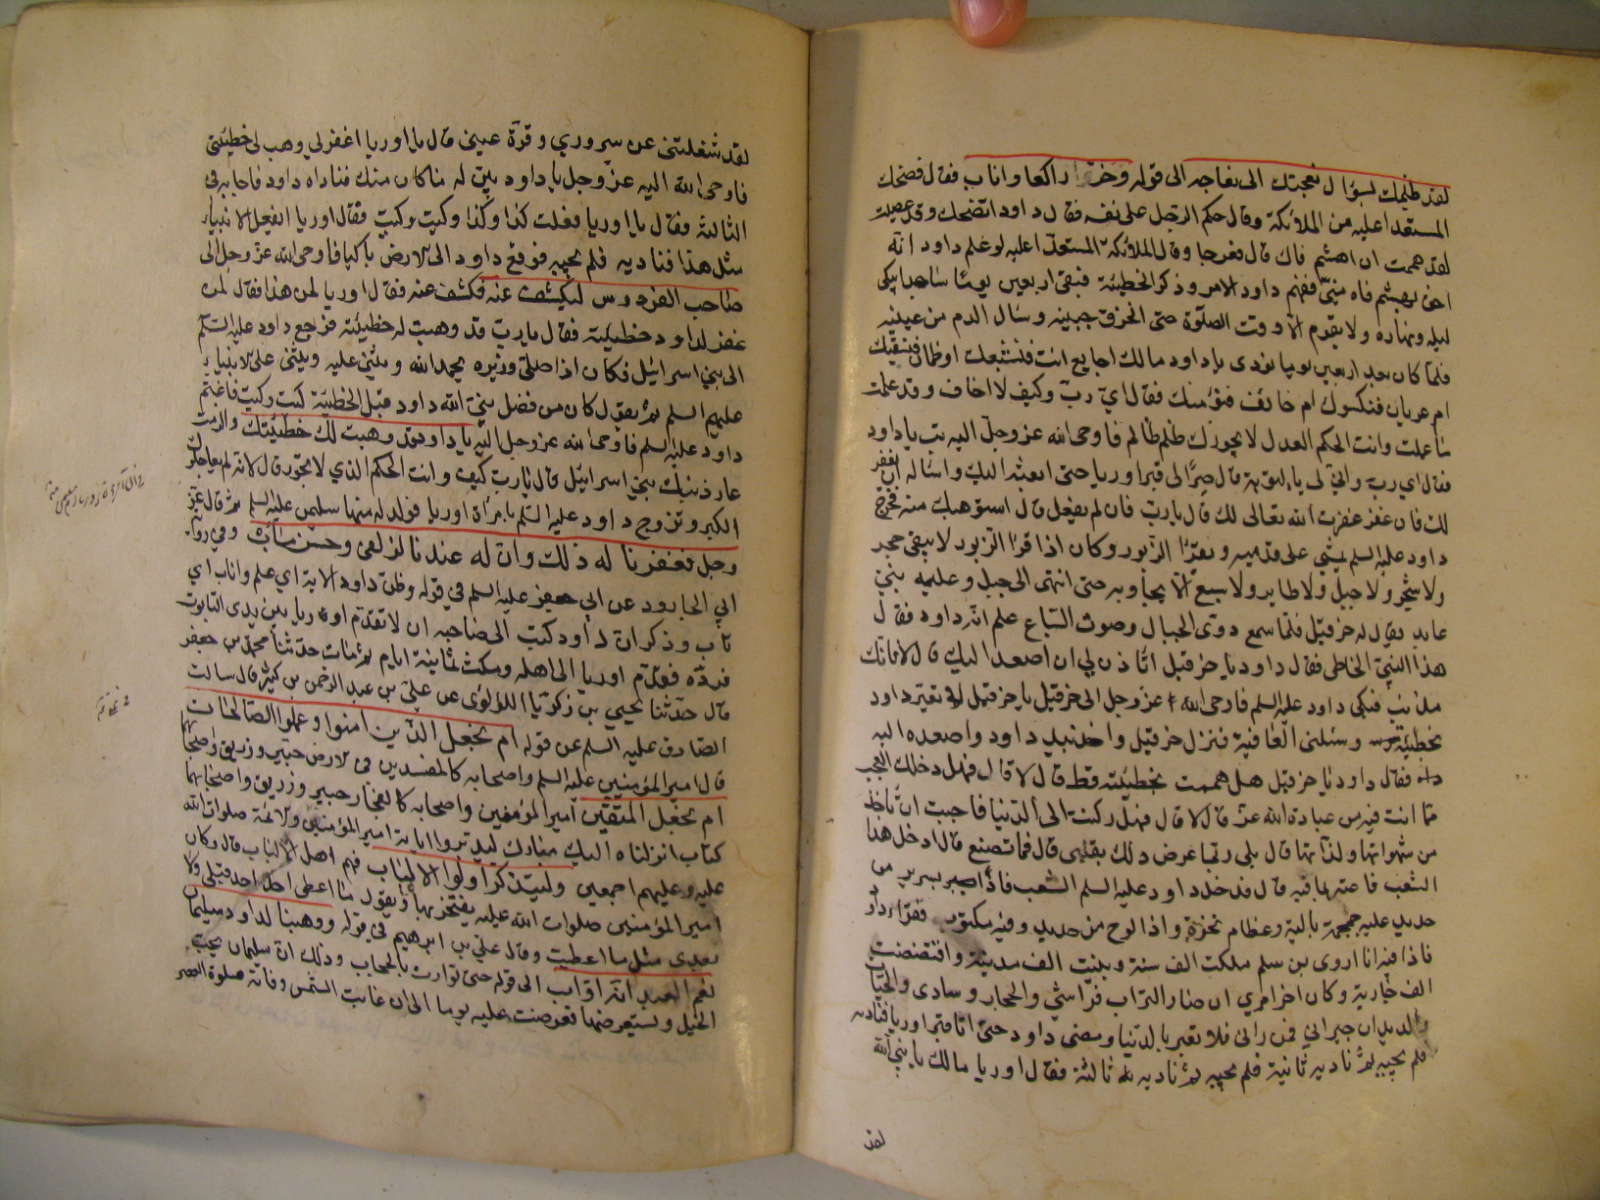 لقد ظلمك بسؤال نعجتك الى نعاجه الى قوله وخر راكعا واناب فقال فضحك
المستعدا عليه من الملائكة وقال حكم الرجل على نفسه فقال داود اتضحك وقد عصيت
لقد هممت ان اهشم فاك قال فعرجا وقال الملائكة المستعدا عليه لو علم داود انه
احق بهشم فاه منى ففهم داود الامر وذكر الخطيئة فبقى اربعين يوما ساجدا يبكى
ليله ونهاره ولا يقوم الا وقت الصلوة حتى انخرق جبينه وسال الدم من عينيه
فلما كان بعد اربعين يوما نودى يا داود مالك اجايع انت فنشبعك او ظمان فنسقيك
ام عريان فنكسوك ام خائف فنؤمنك فقال اى رب وكيف لا اخاف وقد علمت
ما عملت وانت الحكم العدل لا يجوزك ظلم ظالم فاوحى الله عز وجل اليه تب يا داود
فقال اى رب وانى لى بالتوبة قال صر الى قبر اوريا حتى ابعثه اليك واساله ان يغفر
لك فان غفر غفرت الله تعالى لك قال يا رب فان لم يفعل قال استوهبك منه فخرج
داود عليه السلم يمشى على قدميه ويقرأ الزبور وكان اذا قرأ الزبور لا يبقى حجر
ولا شجر ولا جبل ولا طاير ولا سبع الا يجاوبه حتى انتهى الى جبل وعليه نبى
عابد يقال له حزقيل فلما سمع دوى الجبال وصوت السباع علم انه داود فقال
هذا النبى الخاطى فقال داود يا حزقيل اتاذن لى ان اصعد اليك قال لا فانك
مذنب فبكى داود عليه السلم فاوحى الله عز وجل الى حزقيل يا حزقيل لا تعير داود
بخطيئته وسلنى العافية فنزل حزقيل واخذ بيد داود واصعده اليه
فقال داود يا حزقيل هل هممت بخطيئة قط قال لا قال فهل دخلك العجب
مما انت فيه من عبادة الله عز قال لا قال فهل ركنت الى الدنيا فاحببت ان تاخذ
من شهواتها ولذاتها قال بلى ربما عرض ذلك بقلبى قال فما تصنع قال ادخل هذا
الشعب فاعتبر بما فيه قال فدخل داود عليه السلم الشعب فاذا سرير من
حديد عليه جمجمة بالية وعظام نخرة واذا لوح من حديد وفيه مكتوب فقرأه داود
فاذا فيه انا اروى بن سلم ملكت الف سنة وبنيت الف مدينة وافتضضت
الف جارية وكان اخر امرى ان صار التراب فراشى والحجار وسادى والحيات
والديدان جيرانى فمن رانى فلا يغتر بالدنيا ومضى داود حتى اتا قبر اوريا فناداه
فلم يجبه ثم ناديه ثانية فلم يجبه ثم ناديه ثالثة فقال اوريا مالك يا نبى الله
لقد
لقد شغلتنى عن سرورى وقرة عينى قال يا اوريا اغفر لى وهب لى خطيئتى
فاوحى الله اليه عز وجل يا داود بين له ما كان منك فناداه داود فاجابه فى
الثالثة فقال يا اوريا فعلت كذا وكذا وكيت وكيت فقال اوريا ايفعل الانبياء
مثل هذا فناديه فلم يجبه فوقع داود الى الارض باكيا فاوحى الله عز وجل الى
صاحب الفردوس ليكشف عنه فكشف عنه فقال اوريا لمن هذا فقال لمن
غفر لداود خطيئته فقال يا رب قد وهبت له خطيئته فرجع داود عليه السلم
الى بنى اسرائيل فكان اذا صلى وزيره يحمد الله ويثنى عليه ويثنى على الانبياء
عليهم السلم ثم يقول كان من فضل نبى الله داود قبل الخطيئة كيت وكيت فاغتم
داود عليه السلم فاوحى الله عز وجل اليه يا داود قد وهبت لك خطيئتك والزمت
عار ذنبك بنى اسرائيل قال يا رب كيف وانت الحكم الذى لا تجور قال لانه لم يعاجلوك
النكير وتزوج داود عليه السلم بامرأة اوريا فولد له منها سليمن عليه السلم ثم قال عز
وجل فغفرنا له ذلك وان له عندنا لزلفى وحسن مآب وفى رواية
ابى الجارود عن ابى جعفر عليه السلم فى قوله وظن داود الاية اى علم واناب اى
تاب وذكر ان داود كتب الى صاحبه ان لا تقدم اوريا بين يدى التابوت
فرده فقدم اوريا الى اهله ومكث ثمانية ايام ثم مات حدثنا محمد بن جعفر
قال حدثنا يحيى بن زكريا اللؤلؤى عن على بن عبد الرحمن بن كثير قال سالت
الصادق عليه السلم عن قوله ام نجعل الذين امنوا وعملوا الصالحات
قال امير المؤمنين عليه السلم واصحابه كالمفسدين فى الارض حبتر وزريق واصحابهما
ام نجعل المتقين امير المؤمنين واصحابه كالفجار حبتر وزريق واصحابهما
كتاب انزلناه اليك مبارك ليدبروا اياته امير المؤمنين والائمة صلوات الله
عليه وعليهم اجمعين وليتذكر اولوا الالباب فهم اهل الالباب قال وكان
امير المؤمنين صلوات الله عليه يفتخر بها ويقول ما اعطى احد احد قبلى ولا
بعدى مثل ما اعطيت وقال على بن ابرهيم فى قوله ووهبنا لداود سليمان
نعم العبد انه اواب الى قوله حتى توارت بالحجاب وذلك ان سليمان يحب
الخيل ويستعرضها فعرضت عليه يوما الى ان غابت الشمس وفاته صلوة العصر